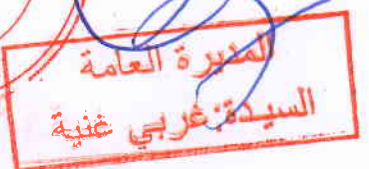 المديرة العامة
السيدة:غربي غنية